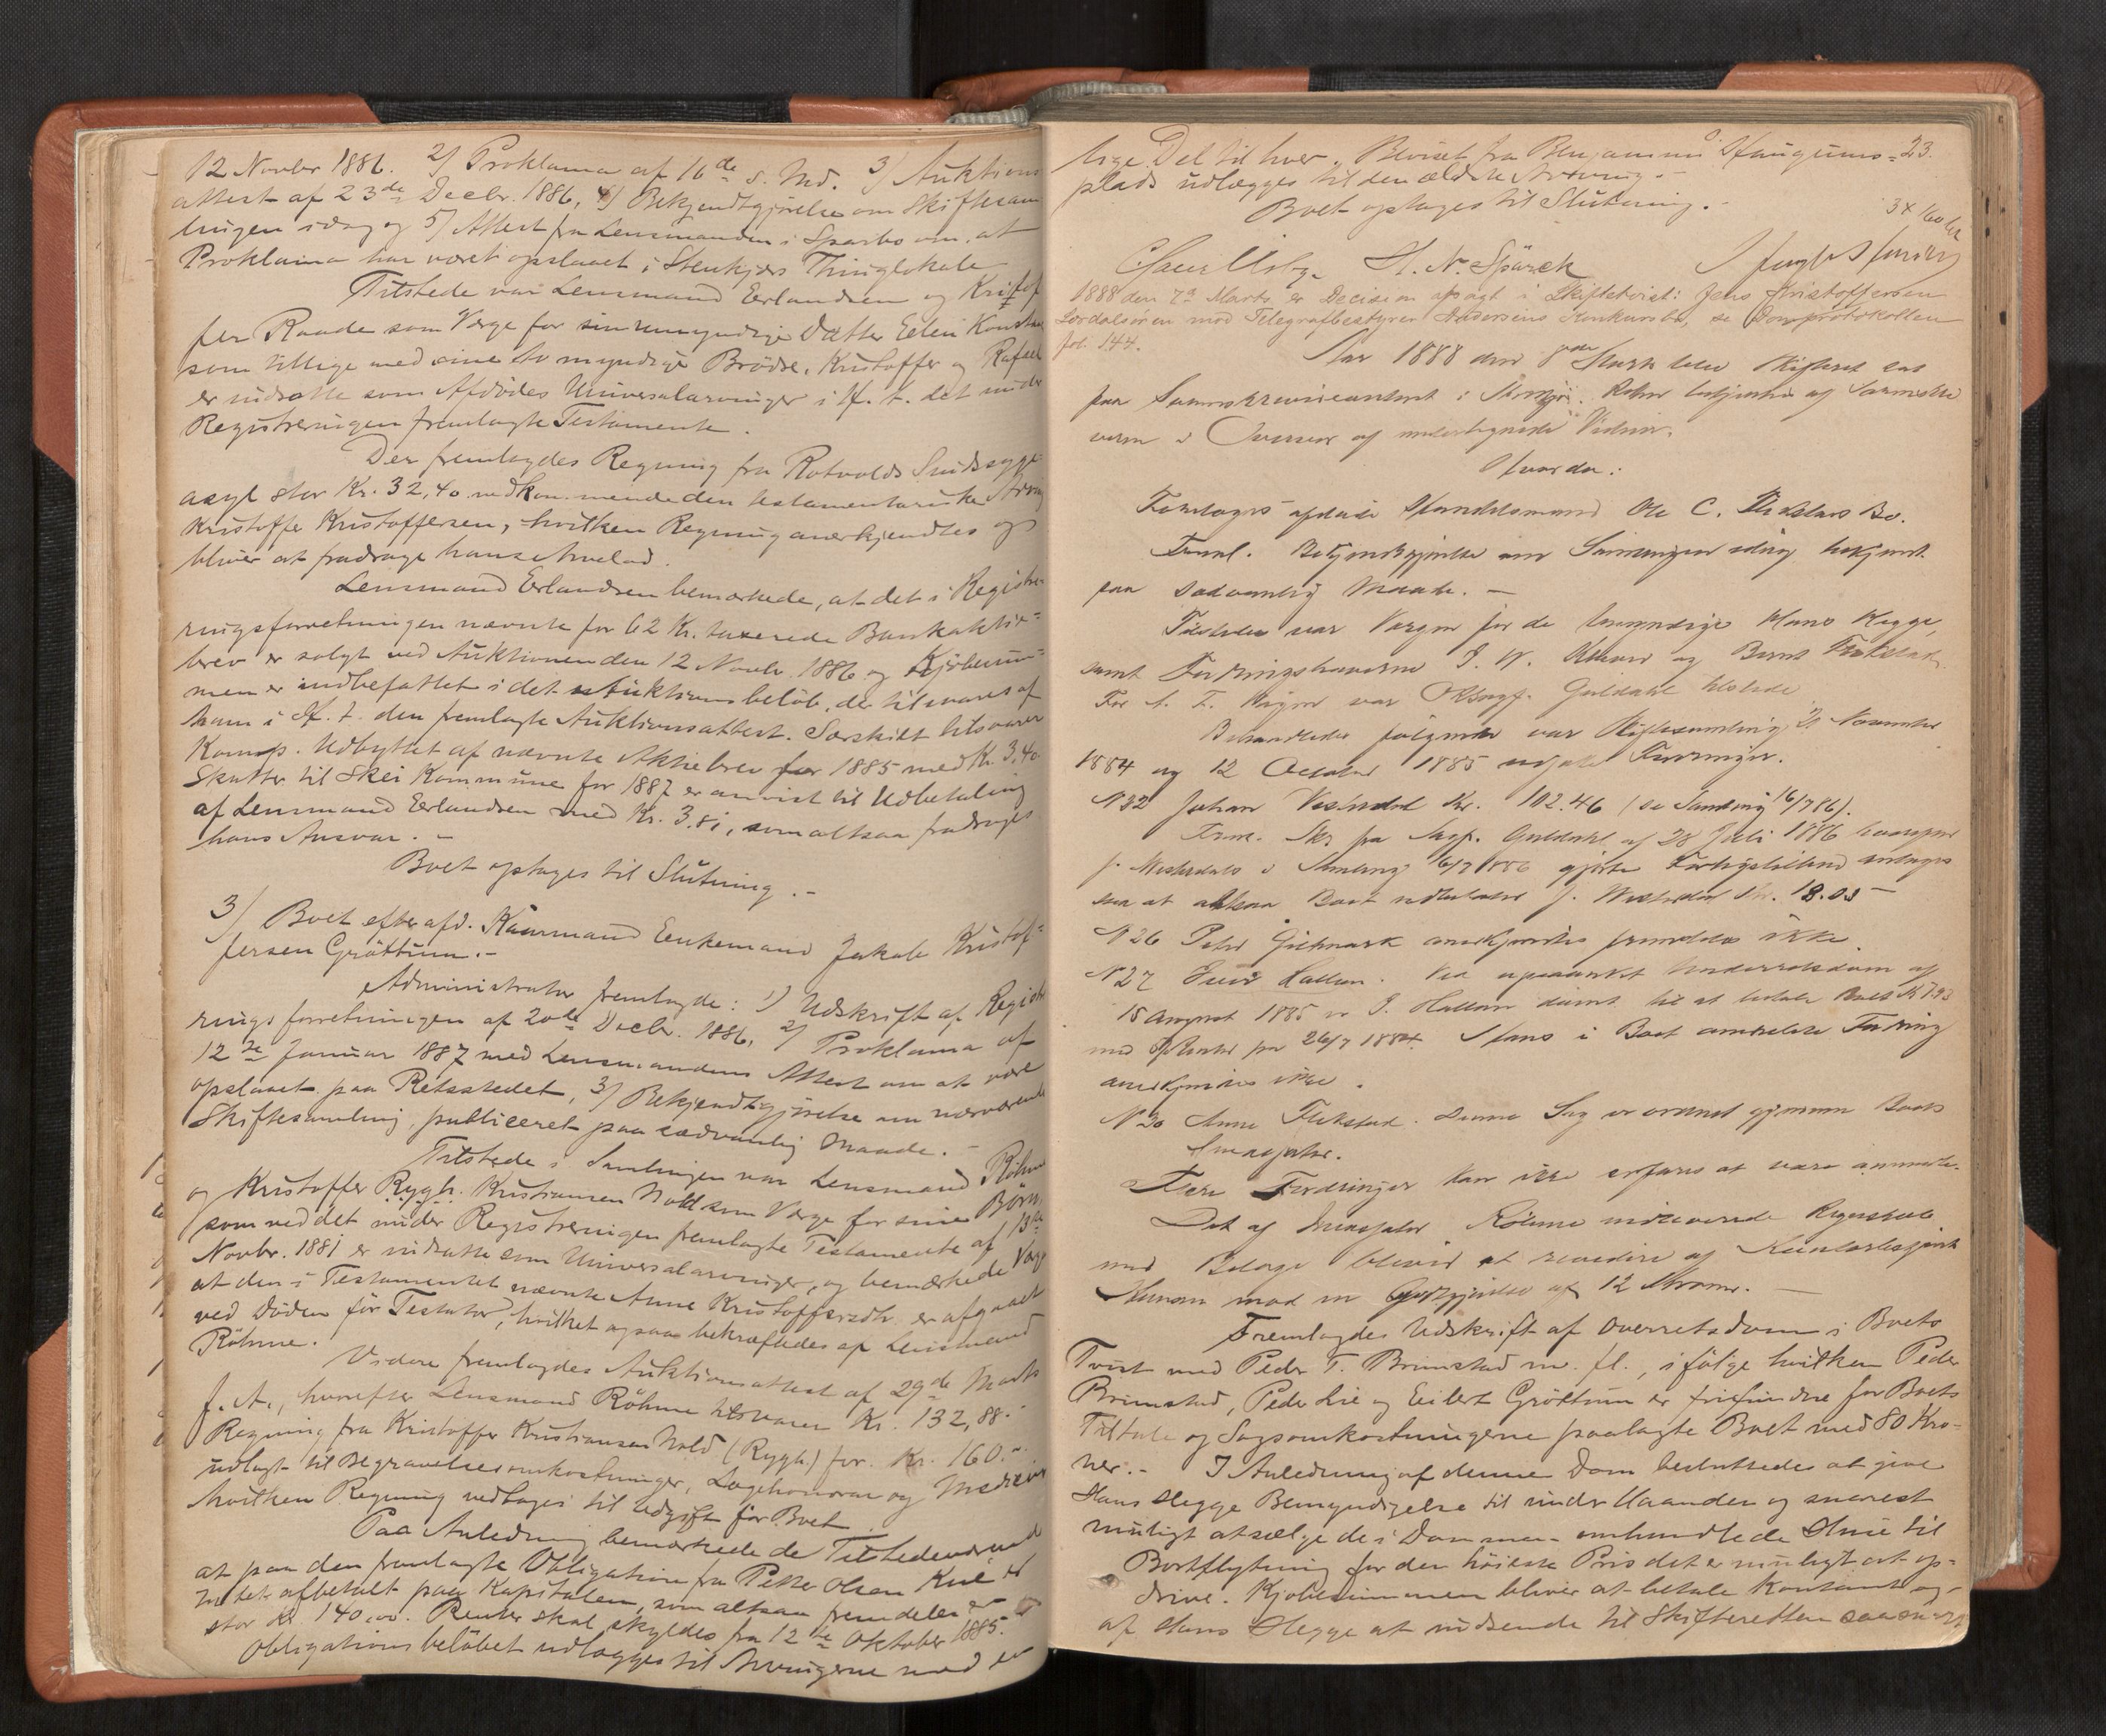 12 Novbr 1886. 2) Proklama af 16de s. Md. 3) Auktions
attest af 23de Decbr. 1886, 4) Bekjendtgjørelse om Skiftesam
lingen idag og 5) Attest fra Lensmanden i Sparbo om, at
Proklama har været opslaaet i Stenkjers Thinglokale
Tilstede var Lensmand Erlandsen og Kristof
fer Raade som Værge for sin umyndige Datter Eelen
som tillige med sine to myndige Brødre, Kristoffer og Rafael
er indsatte som Afdødes Universalarvinger i H. t. det under
Registreringen fremlagte Testamente.
Der fremlagdes Regning fra Rotvolds Sindssyge-
asyl stor Kr. 32,40 vedkommende den testamentariske Arving
Kristoffer Kristoffersen, hvilken Regning anerkjendtes og
bliver at fradrage hans Arvelod.
Lensmand Erlandsen bemærkede, at det i Registre-
ringsforretningen nævnte for 62 Kr. taxerede Bankaktie-
brev er solgt ved Auktionen den 12 Novbr. 1886 og Kjøbesum-
men er indbefattet i det Auktionsbeløb, der tilsvares af
ham i H. t. den fremlagte Auktionsattest. Særskilt tilsvarer
Komp. Udbyttet af nævnte Aktiebrev for 1885 med Kr. 3,40
Skatter til Skei Kommune for 1887 er anvist til Udbetaling
af Lensmand Erlandsen med Kr. 3.81, som altsaa fradrages
hans Ansvar. -
Boet optages til Slutning. -
3) Boet efter afd. Kaarmand Enkemand Jakob Kristof-
fersen Grøttum. -
Administrator fremlagde: 1) Udskrift af Registre
ringsforretningen af 20de Decbr. 1886, 2) Proklama af
12te Januar 1887 med Lensmandens Attest om at være
opslaaet paa Retsstedet, 3) Bekjendtgjørelse om nærværende
Skiftesamling, publiceret paa sædvanlig Maade. -
Tilstede i Samlingen var Lensmand Röhme
og Kristoffer Rygh. Kristiansen Wold som Værge for sine Børn,
som ved det under Registreringen fremlagte Testamente af 13de
Novbr. 1881 er indsatte som Universalarvinger, og bemærkede Værgen
at den i Testamentet nævnte Anne Kristoffersdtr. er afgaaet
ved Døden før Testator, hvilket ogsaa bekræftedes af Lensmand
Röhme.
Videre fremlagdes Auktionsattest af 29de Marts
f. A., hvorefter Lensmand Röhme tilsvarer Kr. 132,88. -
Regning fra Kristoffer Kristiansen Wold (Rygh) for Kr. 160. -
udlagt til Begravelsesomkostninger, Lægehonorar og Medicin
hvilken Regning vedtages til Udgift for Boet.
Paa Anledning bemærkede de Tilstedeværende
at paa den fremlagte Obligation fra Petter Olsen er
intet afbetalt paa Kapitalen, som altsaa fremdeles er
stor Kr. 140,00. Renter skal skyldes fra 12te Oktober 1885.
Obligationsbeløbet udlægges til Arvingerne med en
lige Del til hver. Beviset fra Benjamin Haugums- 23.
plads udlægges til den ældste Arving. -
Boet optages til Slutning. -
H. N. Spärck
1888 den 7de Marts er Decision afsagt i Skiftetvist: Jens Kristoffersen
Lerdalsøren mod Telegrafbestyrer Andersens Konkursbo, se Domprotokollen
fol. 144.
Aar 1888 den 8de Marts blev Skifteret sat
paa Sorenskriverkontoret i . Retten betjentes af Sorenskri
veren i Overvær af undertegnede Vidner.
Hvorda:
Foretoges afdøde Handelsmand Ole C. Bo.
Freml. Bekjendtgjørelse om Samlingen idag bekjendt.
paa sædvanlig Maade. -
Tilstede var Værgen for de umyndige Hans Hegge,
samt Fordringshaverne J. W. og Bernt
For A. F. var Oversagf. Guldahl tilstede
Behandledes følgende paa Skiftesamling 21 November
1884 og 12 October 1885 Fordringer.
N 32 Johan Kr. 102.46 (se Samling 16/7 86).
Frem. Skr fra Sagf. Guldahl af 28 Juli 1886
J. i Samling 16/7 1886 gjorte Forligstilbud antages
saa at altsaa Boet udbetaler J. Kr. 18.03 -
N 26 Peter anerkjendes fremdeles ikke.
N 27 Hallem. Ved upaaanket Underretsdom af
15 August 1885 er J. Hallem dømt til at betale Boet
med Renter fra 26/7 1884. Hans i Boet anmeldte Fordring
anerkjendes ikke.
N 30 Anne Denne Sag er ordnet gjennem Boets
Incassator.
Flere Fordringer kan ikke erfares at være anmeldte.
Det af Incassator Röhme indleverede Regnskab
med Bilage bliver at revidere af Kontorbetjent
Hansen mod en Godtgjørelse af 12 Kroner. -
Fremlagdes Udskrift af Overretsdom i Boets
Tvist med Peder T. Brimstad m. fl., ifølge hvilken Peder
Brimstad, Peder Lie og Eilert Grøttum er frifundne for Boets
Tiltale og Sagsomkostningerne paalagte Boet med 80 Kro-
ner. - I Anledning af denne Dom besluttedes at give
Hans Hegge Bemyndigelse til under Haanden og snarest
muligt at sælge de i Dommen omhandlede Huse til
Bortflytning for den høieste Pris det er muligt at op-
drive. Kjøbesummen bliver at betale kontant og
af Hans Hegge at indsende til Skifteretten saasnart